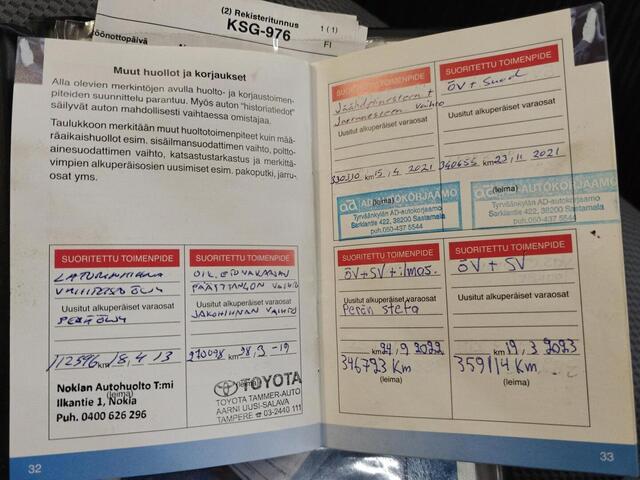 (2) Rekisteritunnus
KSG-976
1 (1)
FI
öönottopäivä
Muut huollot ja korjaukset
Alla olevien merkintöjen avulla huolto- ja korjaustoimen-
piteiden suunnittelu parantuu. Myös auton "historiatiedot"
säilyvät auton mahdollisesti vaihtaessa omistajaa.
Taulukkoon merkitään muut huoltotoimenpiteet kuin mää-
räaikaishuollot esim. sisäilmansuodattimen vaihto, poltto-
ainesuodattimen vaihto, katsastustarkastus ja merkittä-
vimpien alkuperäisosien uusimiset esim. pakoputki, jarru-
osat yms.
SUORITETTU TOIMENPIDE
Uusitut alkuperäiset varaosat
PERÄ ÖLJY
112596 km 18,4 13
(leima)
Noklan Autohuolto T:mi
Ilkantie 1, Nokia
Puh. 0400 626 296
SUORITETTU TOIMENPIDE
OIK. ETUVAKAAJAN
PÄÄSTANGON VAIHTO
Uusitut alkuperäiset varaosat
JAKOHIHNAN VAIHTO
270098 km 28,3 -19
TOYOTA
(leima)
TOYOTA TAMMER-AUTO
AARNI UUSI-SALAVA
TAMPERE ☎ 03-2440 111
32
SUORITETTU TOIMENPIDE
Jäähdytinnesteen +
Jarrunesteen vaihto
Uusitut alkuperäiset varaosat
330330 km 15,4 2021
(leima)
ad-AUTOKORJAAMO
Tyrväänkylän AD-autokorjaamo
Sarklantie 422, 38200 Sastamala
puh.050-437 5544
SUORITETTU TOIMENPIDE
ÖV + Suod
Uusitut alkuperäiset varaosat
340655 km 23,11 2021
(leima)
ad-AUTOKORJAAMO
Tyrväänkylän AD-autokorjaamo
Sarklantie 422, 38200 Sastamala
puh.050-437 5544
SUORITETTU TOIMENPIDE
ÖV + SV + ilmas.
Uusitut alkuperäiset varaosat
Perän stefa
km 24,9 2022
346793 Km
(leima)
SUORITETTU TOIMENPIDE
ÖV + SV
Uusitut alkuperäiset varaosat
km 19,3 2023
359114 Km
(leima)
33